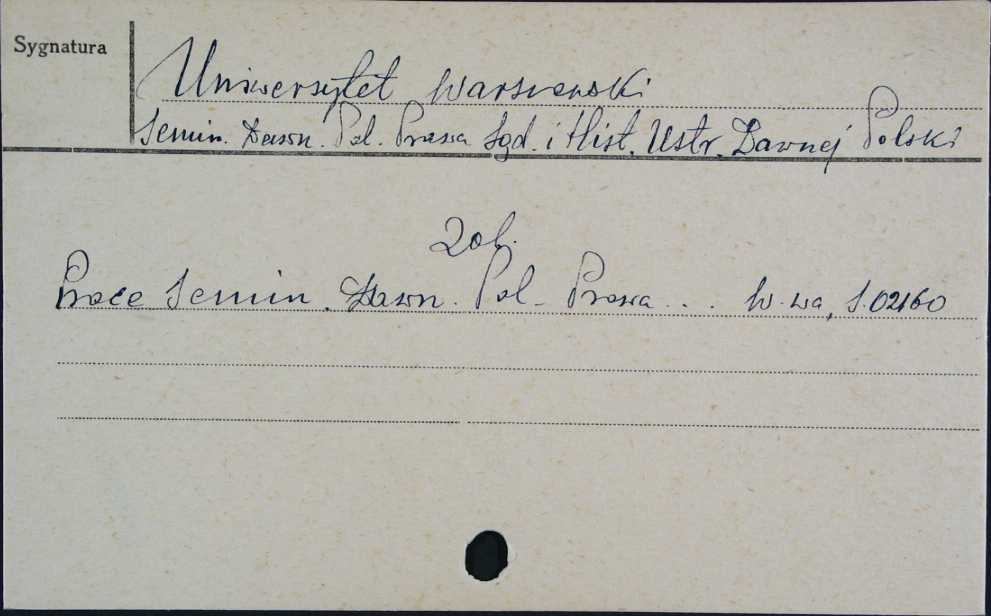 Sygnatura
Uniwersytet Warszawski
Semin. Dawn. Pol. Prawa Sąd. i Hist. Ustr. Dawnej Polski
Zob.
Prace Semin. Dawn. Pol. Prawa... W-wa, S.02160